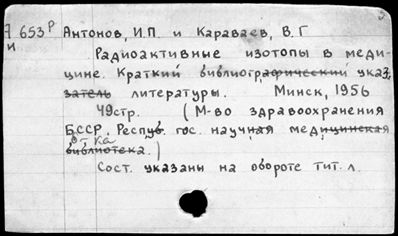 А 653р Антонов, И.П. и Караваев, В.Г
и
Радиоактивные изотопы в меди-
цине. Краткий библиографический указ.
затель литературы. Минск, 1956
49стр. (М-во здравоохранения
БССР. Респуб. гос. научная медицинская
б-тка
библиотека.)
Сост. указаны на обороте тит. л.